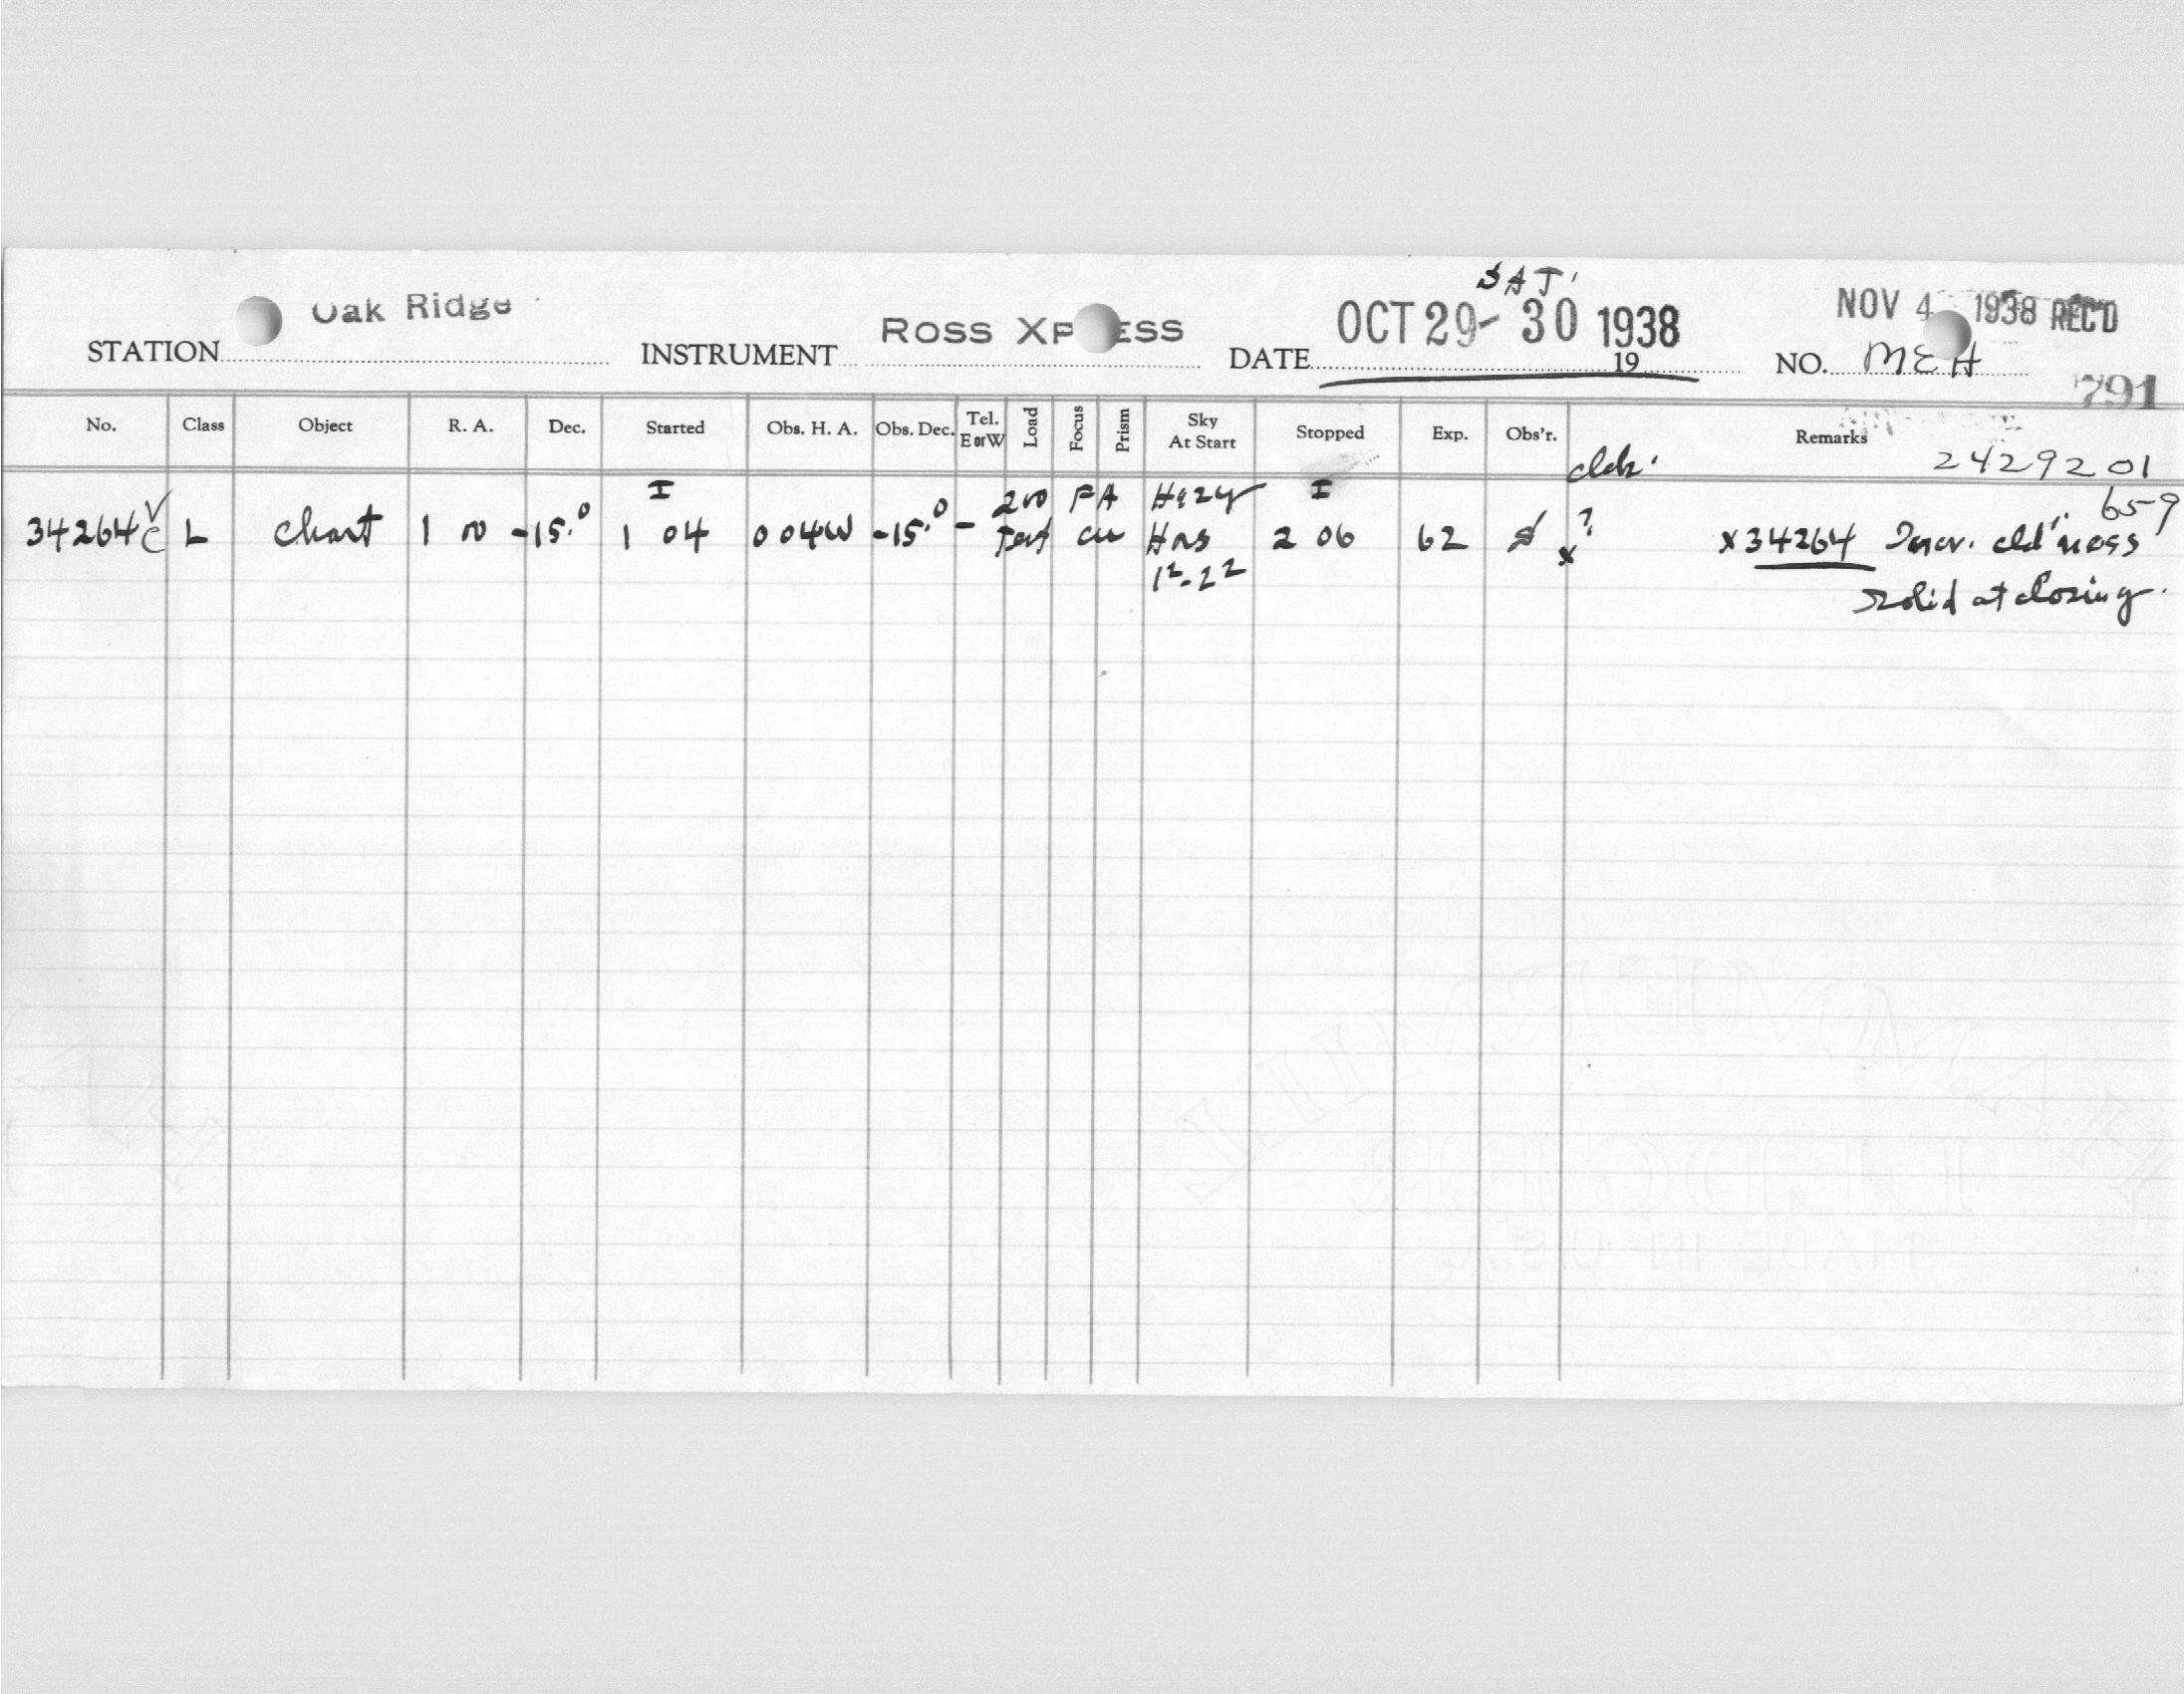 SAT.
Oak Ridge
ROSS XP ESS
OCT 29-30 1938
NOV 4 1938 REC'D
STATION INSTRUMENT DATE 19 NO. MEH
791
No. Class Object R. A. Dec. Started Obs. H. A. Obs. Dec. Tel. E or W Load Focus Prism Sky At Start Stopped Exp. Obs'r. Remarks
2429201
.659
I 200 FA Hazy I ?
34264 C L Chart 1 00 -15.° 1 04 0 04W -15.° - Has 2 06 62 x x34264 Incr. cld'ness
1²-2²
solid at closing.
MADE IN U.S.A.